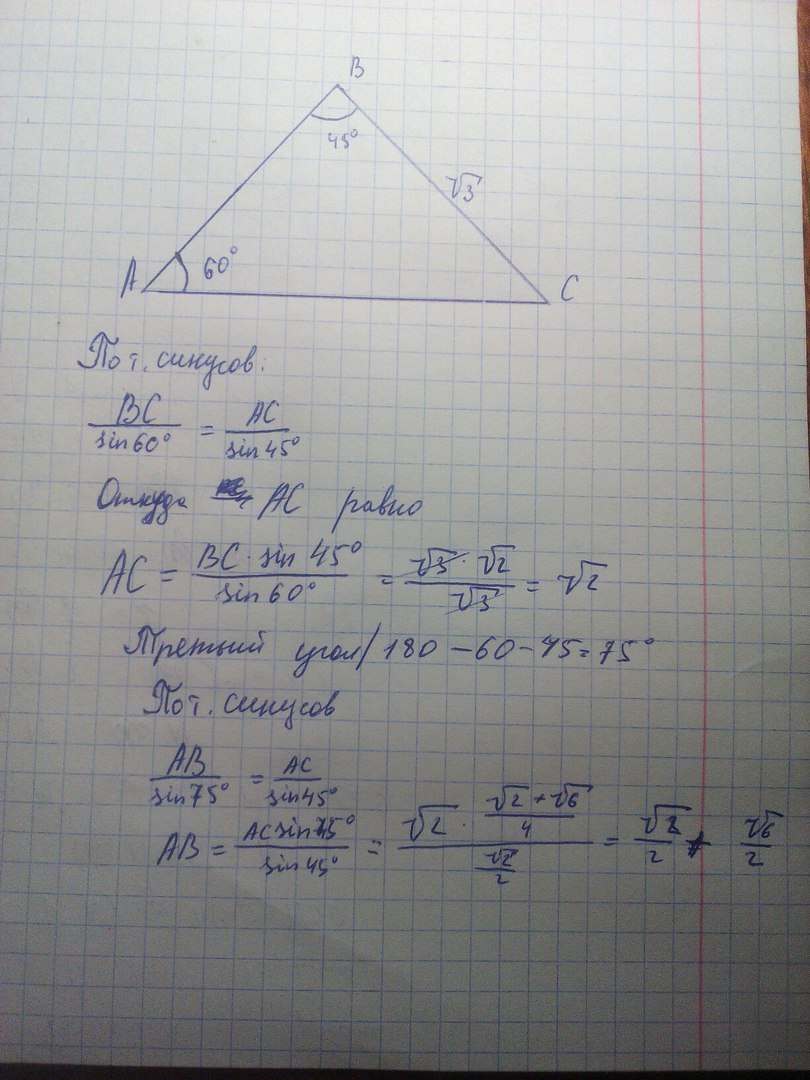 B
45°
√3
A
60°
C
По т. синусов:
BC/sin60° = AC/sin45°
Откуда AC равно
AC = BC · sin 45°/sin 60° = √3 · √2/√3 = √2
Третий угол/ 180 - 60 - 45 = 75°
По т. синусов
AB/sin75° = AC/sin45°
AB = AC sin75°/sin45° = (√2 · (√2 + √6)/4)/(√2/2) = √2/2 + √6/2